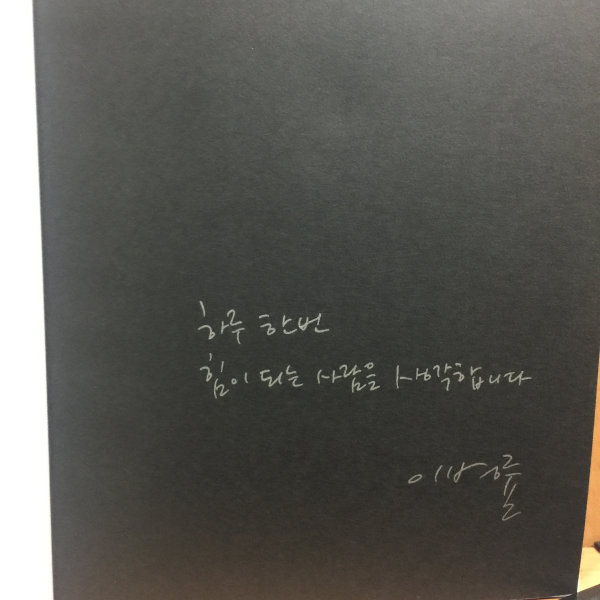 하루 한번
힘이 되는 사람을 생각합니다
이병률